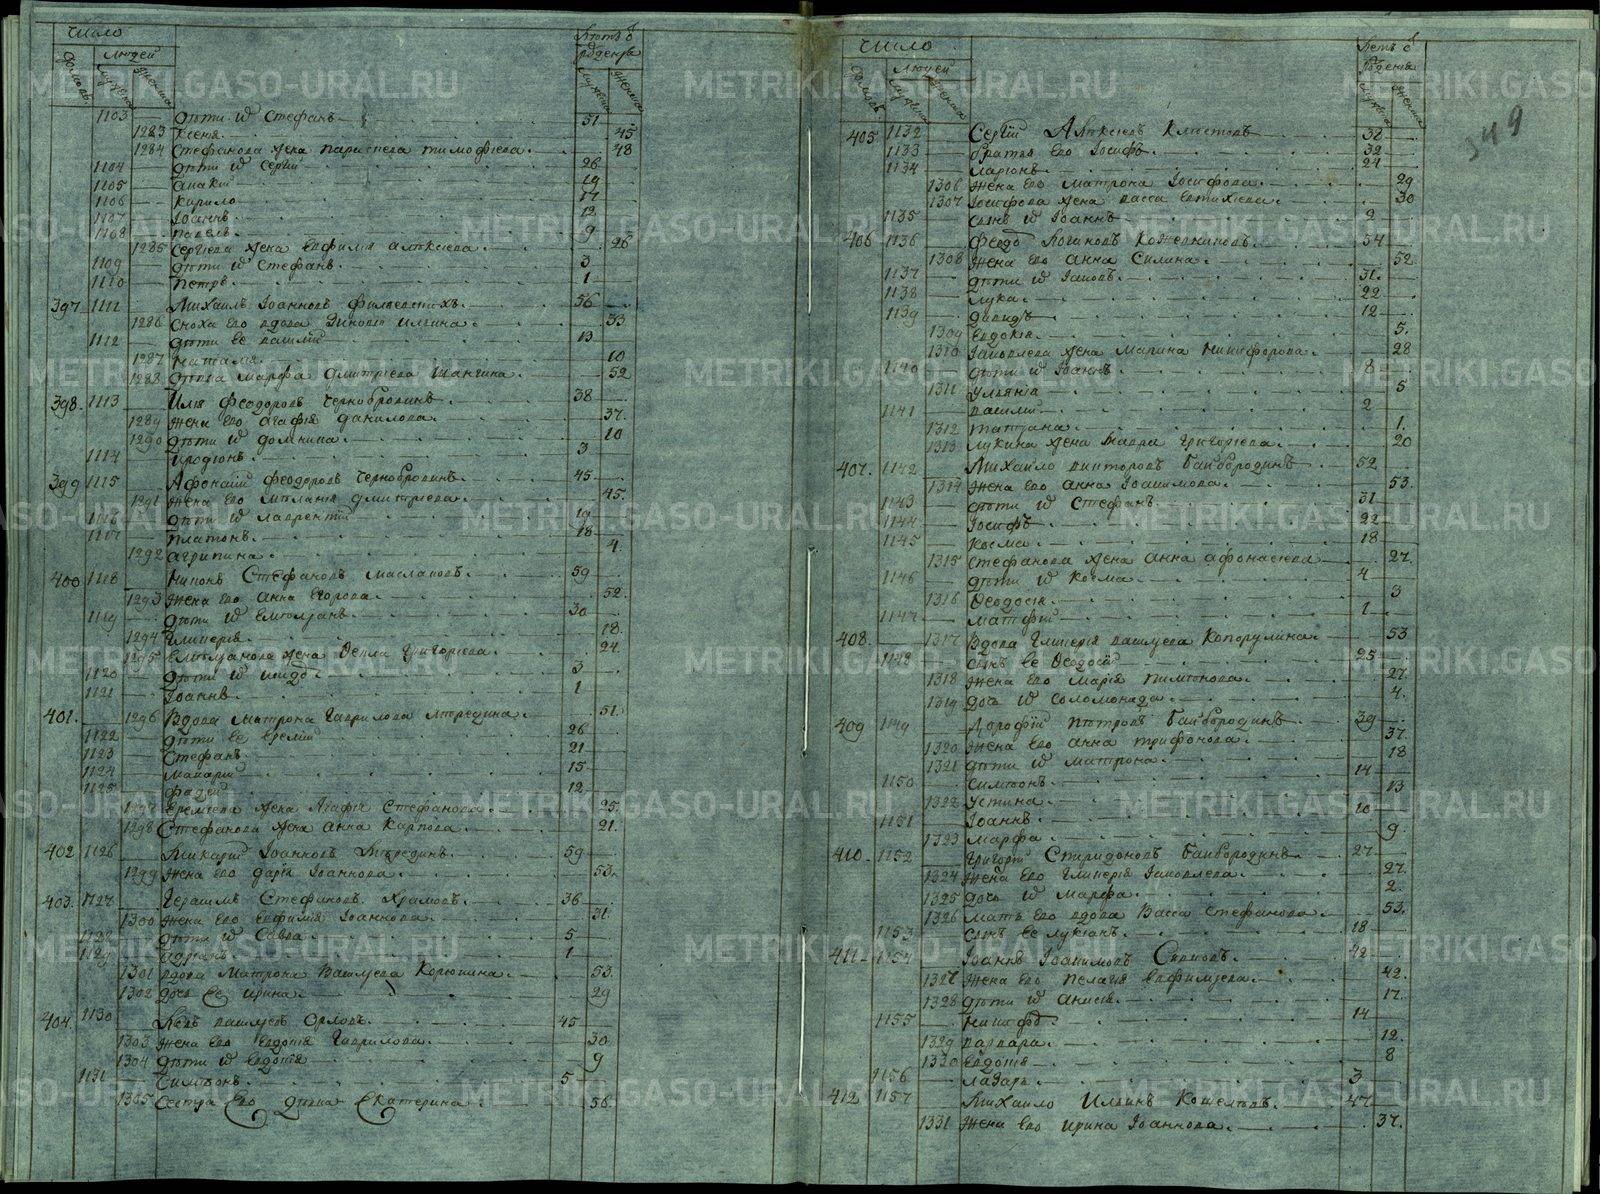 Число
людей
домовъ
мужеска
женска
Лѣтъ ѿ
рожденія
мужеска
женска
1103 дѣти их Стефанъ 51
1283 Ксенія 45
1284 Стефанова жена параскева тимофѣева 48
1104 дѣти их Сергій 26
1105 19
1106 Кирило 17
1107 Іоаннъ 12
1108 павелъ 9
1285 Сергіева жена евфимія алексіева 26
1109 дѣти их Стефанъ 3
1110 петръ 1
397 1111 Михаилъ Іоанновъ 56
1286 Сноха его вдова Зиновія ильина 33
1112 дѣти ее василій 13
1287 Наталія 10
1288 Марфа димитріева 52
398 1113 Илія феодоровъ чернобровинъ 38
1289 жена его агафія данилова 37
1290 дѣти их домника 10
1114 иродіонъ 3
399 1115 Афонасій феодоровъ чернобровинъ 45
1291 жена его меланія димитріева 45
1116 дѣти их лаврентій 19
1117 платонъ 18
1292 агрипина 4
400 1118 Никонъ Стефановъ маслаковъ 59
1293 жена его анна Егорова 52
1119 дѣти их емельянъ 30
1294 гликерія 18
1295 Емельянова жена Ѳекла григоріева 24
1120 дѣти их 3
1121 Іоаннъ 1
401 1296 Вдова матрона Гаврилова 51
1122 дѣти ее еремій 26
1123 Стефанъ 21
1124 макарій 15
1125 фадей 12
1297 Еремѣева жена Агафія Стефанова 25
1298 Стефанова жена анна Карпова 21
402 1126 Іоанновъ 59
1299 жена его дарія Іоаннова 53
403 1127 Герасимъ Стефановъ Храмовъ 36
1300 жена его евфимія Іоаннова 31
1128 дѣти их Савва 5
1129 адріанъ 1
1301 вдова Матрона Васильева Корюкина 53
1302 дочь ее ирина 29
404 1130 Левъ васильевъ Орловъ 45
1303 жена его евдокія Гаврилова 30
1304 дѣти их евдокія 9
1131 Симеонъ 5
1305 Сестра его дѣвка Екатерина 56
Число
людей
домовъ
мужеска
женска
Лѣтъ ѿ
рожденія
мужеска
женска
349
405 1132 Сергій Алексіевъ 37
1133 братъ его Іосифъ 32
1134 ларіонъ 24
1306 жена его матрона Іосифова 29
1307 Іосифова жена васса евтихіева 30
1135 сынъ их Іоаннъ 2
406 1136 Логиновъ Кожевниковъ 54
1308 жена его анна Силина 52
1137 дѣти их Іаковъ 31
1138 лука 22
1139 давидъ 12
1309 евдокія 5
1310 Іаковлева жена Марина Никифорова 28
1140 дѣти их Іоаннъ 8
1311 ульянія 5
1141 василій 2
1312 татіана 1
1313 лукина жена григоріева 20
407 1142 Михайло викторовъ байбородинъ 52
1314 жена его анна Іоакимова 53
1143 дѣти их Стефанъ 31
1144 Іосифъ 22
1145 косма 18
1315 Стефанова жена анна афонасіева 27
1146 дѣти их Косма 4
1316 Ѳеодосія 3
1147 матфій 1
408 1317 Вдова Гликерія васильева Копорулина 53
1148 сынъ ее Ѳеодосій 25
1318 жена его Марія пименова 27
1319 дочь их Соломонида 4
409 1149 Дорофій петровъ байбородинъ 39
1320 жена его анна трифонова 37
1321 дѣти их матрона 18
1150 Симеонъ 14
1322 устина 13
1151 Іоаннъ 10
1323 марфа 9
410 1152 Григорій Спиридоновъ байбородинъ 27
1324 жена его гликерія Іаковлева 27
1325 дочь их марфа 2
1326 мать его вдова Васса стефанова 53
1153 сынъ ее лукіанъ 18
411 1154 Іоаннъ Іоакимовъ 42
1327 жена его пелагія евфиміева 42
1328 дѣти их анисія 17
1155 14
1329 варвара 12
1330 евдокія 8
1156 лазарь 3
412 1157 Михайло Ильинъ Кошелевъ 47
1331 жена его ирина Іоаннова 37
METRIKI.GASO-URAL.RU